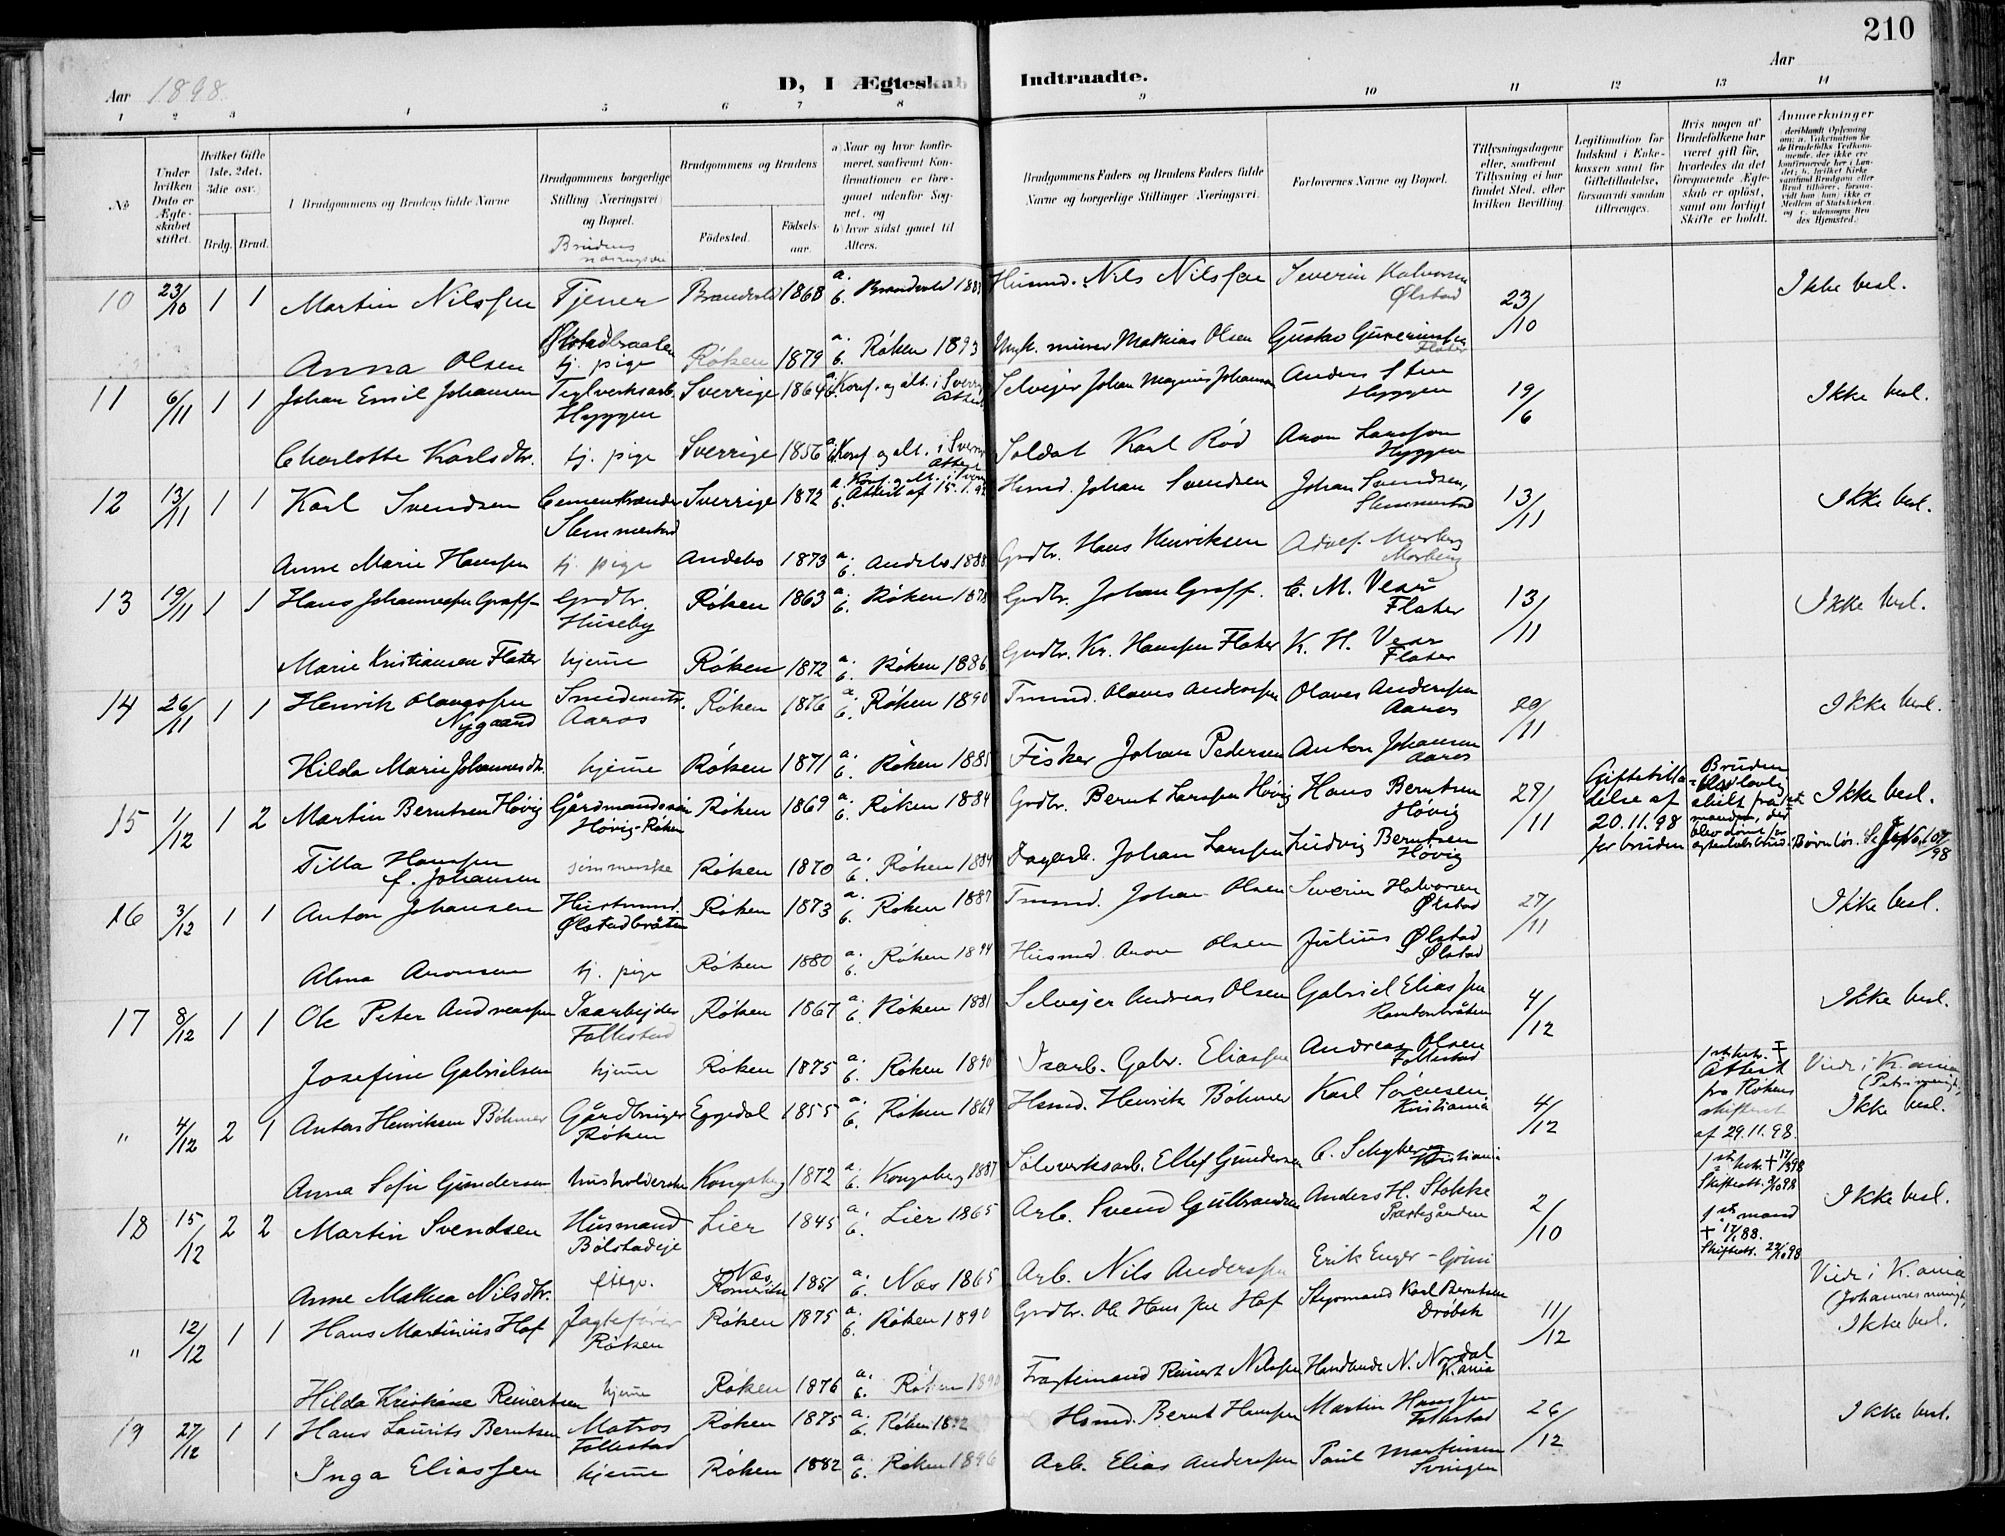 210
Aar 1898. D, I Ægteskab Indtraadte. Aar
1 2 3 4 5 6 7 8 9 10 11 12 13 14
No
Under hvilken Dato er Ægteskabet stiftet.
Hvilket Gifte 1ste, 2det, 3die osv.
Brdg. Brud.
Brudgommens og Brudens fulde Navne
Brudgommens borgerlige Stilling (Næringsvei) og Bopæl.
Brudens
Brudgommens og Brudens
Födested. Födsels-aar.
a) Naar og hvor konfirmeret, saafremt Konfirmationen er foregaaet udenfor Sognet, og
b) hvor sidst gaaet til Alters.
Brudgommens Faders og Brudens Faders fulde Navne og borgerlige Stillinger Næringsvei.
Forlovernes Navne og Bopæl.
Tillysningsdagene eller, saafremt Tillysning ei har fundet Sted, efter hvilken Bevilling.
Legitimation for Indskud i Enkekassen samt for Giftetilladelse, forsaavidt saadan tiltrænges.
Hvis nogen af Brudefolkene har været gift før, hvorledes da det foregaaende Ægteskab er opløst, samt om lovligt Skifte er holdt.
Anmærkninger
10 23/10 1 1 Martin Nilssen Tjener Brandvold 1868 a. b. Brandvold Husmd. Nils Nilssen Severin Halvorsen Ølstad 23/10 Ikke besl.
Anna Olsen Ølstadbraaten tj. pige Røken 1879 a. b. Røken 1893 Ungk. murer Mathias Olsen Gustav Flater
11 6/11 1 1 Johan Emil Johansen Teglverksarb. Hyggen Sverrige 1864 Konf. og alt. i Sverrig Attest Selveier Johan Magnus Johansen Anders Sten Hyggen 19/6 Ikke besl.
Charlotte Karlsdtr. tj. pige Sverrige 1856 Konf. og alt. i Sverrig Attest Soldat Karl Rød Aron Larsson Hyggen
12 13/11 1 1 Karl Svendsen Cementbrænder Slemmestad Sverrige 1872 a. Konf. og alt. i Sverrig b. Attest af 15.1.92 Hsmd. Johan Svendsen Johan Svendsen, Slemmestad 13/11 Ikke besl.
Anne Marie Hanssen tj. pige Andebo 1873 a. b. Andebo 1888 Grdbr. Hans Henriksen Adolf Morberg Morberg
13 19/11 1 1 Hans Johannessen Graff Grdbr. Huseby Røken 1863 a. b. Røken 1878 Grdbr. Johan Graff. C. M. Vear Flater 13/11 Ikke besl.
Marie Kristiansen Flater hjeme Røken 1872 a. b. Røken 1886 Grdbr. Kr. Hanssen Flater K. H. Vear Flater
14 26/11 1 1 Henrik Olavessen Nygaard Smedemstr. Aaros Røken 1876 a. b. Røken 1890 Tmmd. Olaves Anderssen Olaves Anderssen Aaros 20/11 Ikke besl.
Hilda Marie Johannesdtr. hjeme Røken 1871 a. b. Røken 1885 Fisker Johan Pedersen Anton Johansen Aaros
15 1/12 1 2 Martin Berntsen Høvig Gårdmandssøn Høvig-Røken Røken 1869 a. b. Røken 1884 Grdbr. Bernt Larssen Høvig Hans Berntsen Høvig 27/11 Giftetilladelse af 20.11.98 for bruden Bruden lovlig skilt fra manden, der blev dømt for Ikke besl.
Tilla Hanssen f. Johansen Røken 1870 a. b. Røken 1884 Dagarb. Johan Larssen Ludvig Berntsen Høvig
16 3/12 1 1 Anton Johansen Husmand. Ølstadbråten Røken 1873 a. b. Røken 1887 Tmmd. Johan Olsen Severin Halvorsen Ølstad 27/11 Ikke besl.
Alma Aronsen tj. pige Røken 1880 a. b. Røken 1894 Husmd. Aron Olsen Julius Ølstad Ølstad
17 8/12 1 1 Ole Peter Andreassen Isarbejder Follestad Røken 1867 a. b. Røken 1881 Selvejer Andreas Olsen Gabriel Eliassen 4/12 Ikke besl.
Josefine Gabrielsen hjeme Røken 1875 a. b. Røken 1890 Isarb. Gabr. Eliassen Andreas Olsen Follestad
" 4/12 2 1 Anders Henriksen Böhmer Gårdbruger Røken Eggedal 1855 a. b. Røken 1869 Hsmd. Henrik Böhmer Karl Sørensen Kristiania 4/12 1ste hstr. † Attest fra Røkens skifteret af 29.11.98. Viede i K.ania (Petri menigh.) Ikke besl.
Anna Sofie Gundersen husholderske Kongsberg 1872 a. b. Kongsberg 1887 Sølvverksarb. Ellef Gundersen Kristiania
18 15/12 2 2 Martin Svendsen Husmand Bølstadeje Lier 1845 a. b. Lier 1865 Arb. Svend Gulbrandsen Anders H. Stokke Præstegården 2/10 1ste hstr. † 17/3 98 Skifteatt. 98 Ikke besl.
Anne Mathea Nilsdtr. Næs Romerike 1851 a. b. Næs 1865 Arb. Nils Anderssen Erik Enger - Grini 1ste mand † 17/1 88. Skifteatt. 22/10 98
" 12/12 1 1 Hans Martinius Hof Jagtefører Røken Røken 1875 a. b. Røken 1890 Grdbr. Ole Hanssen Hof Styrmand Karl Berntsen Drøbak 11/12 Viede i K.ania (Johannes menigh.) Ikke besl.
Hilda Kristiane Reinertsen hjeme Røken 1876 a. b. Røken 1890 Fragtemand Reinert Nilssen Handlende N. Nordal K.ania
19 27/12 1 1 Hans Laurits Berntsen Matros Follestad Røken 1875 a. b. Røken 1892 Hsmd. Bernt Hanssen Martin Hanssen Follestad 26/12 Ikke besl.
Inga Eliassen hjeme Røken 1882 a. b. Røken 1896 Arb. Elias Anderssen Paul Martinsen Svingen